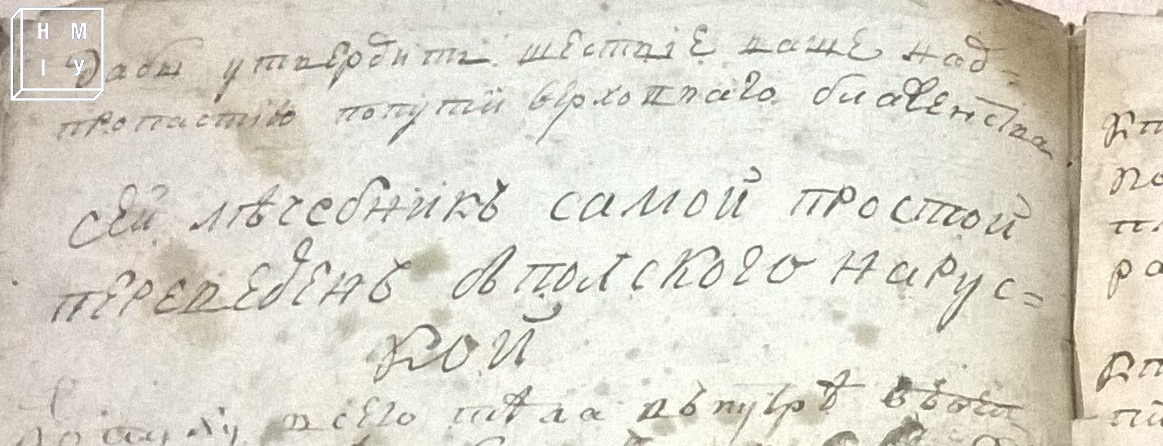 Н М І У
Дабы утвердить шествіе наше над=
пропастію попутй верховнаго блаженства
сей лѣчебникъ самой простой
переведенъ сполского нарус=
кой
всего тѣла